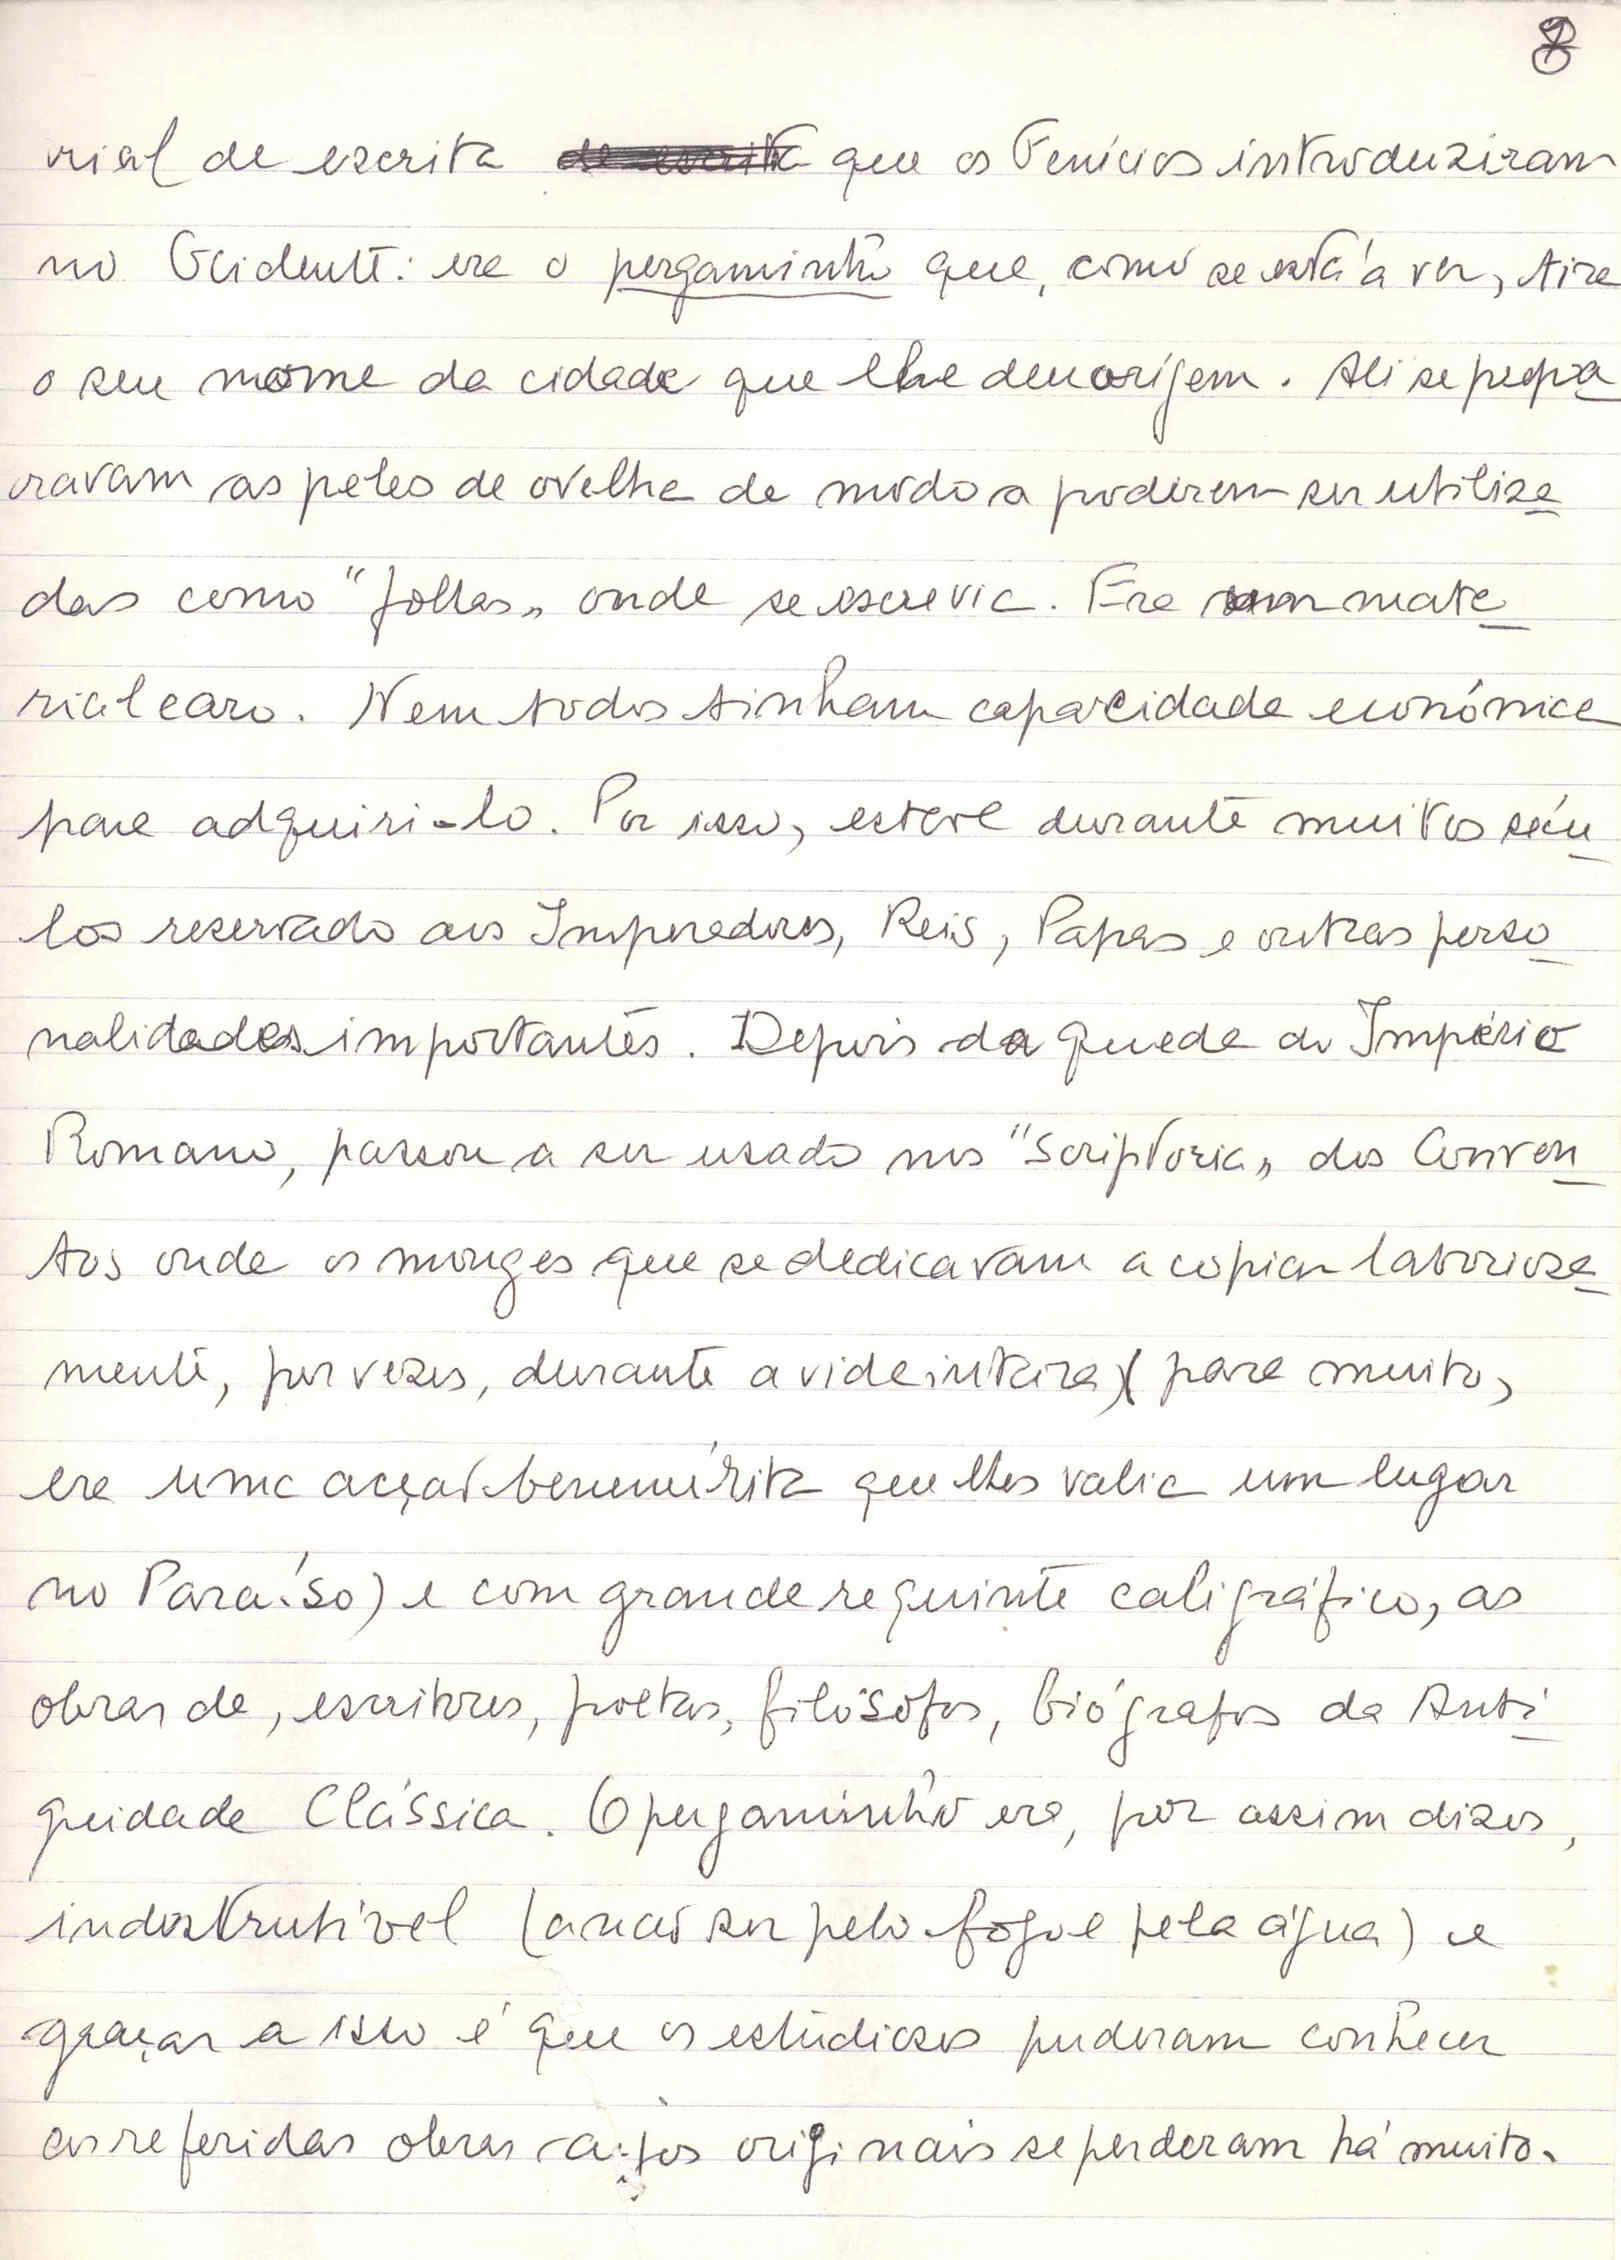 8
rial de escrita de escrita que os Fenícios introduziram
no Ocidente: era o pergaminho que, como se está a ver, tira
o seu nome da cidade que lhe deu origem. Ali se prepa
ravam as peles de ovelha de modo a poderem ser utiliza
das como "folhas" onde se escrevia. Era um mate
rial caro. Nem todos tinham capacidade económica
para adquiri-lo. Por isso, esteve durante muitos sécu
los reservado aos Imperadores, Reis, Papas e outras perso
nalidades importantes. Depois da queda do Império
Romano, passou a ser usado nos "Scriptoria" dos Conven
tos onde os monges que se dedicavam a copiar laboriosa
mente, por vezes, durante a vida inteira (para muitos,
era uma acção benemérita que lhes valia um lugar
no Paraíso) e com grande requinte caligráfico, as
obras de, escritores, poetas, filósofos, biógrafos da Anti
guidade Clássica. O pergaminho era, por assim dizer,
indestrutível (a não ser pelo fogo e pela água) e
graças a isso é que os estudiosos puderam conhecer
as referidas obras cujos originais se perderam há muito.